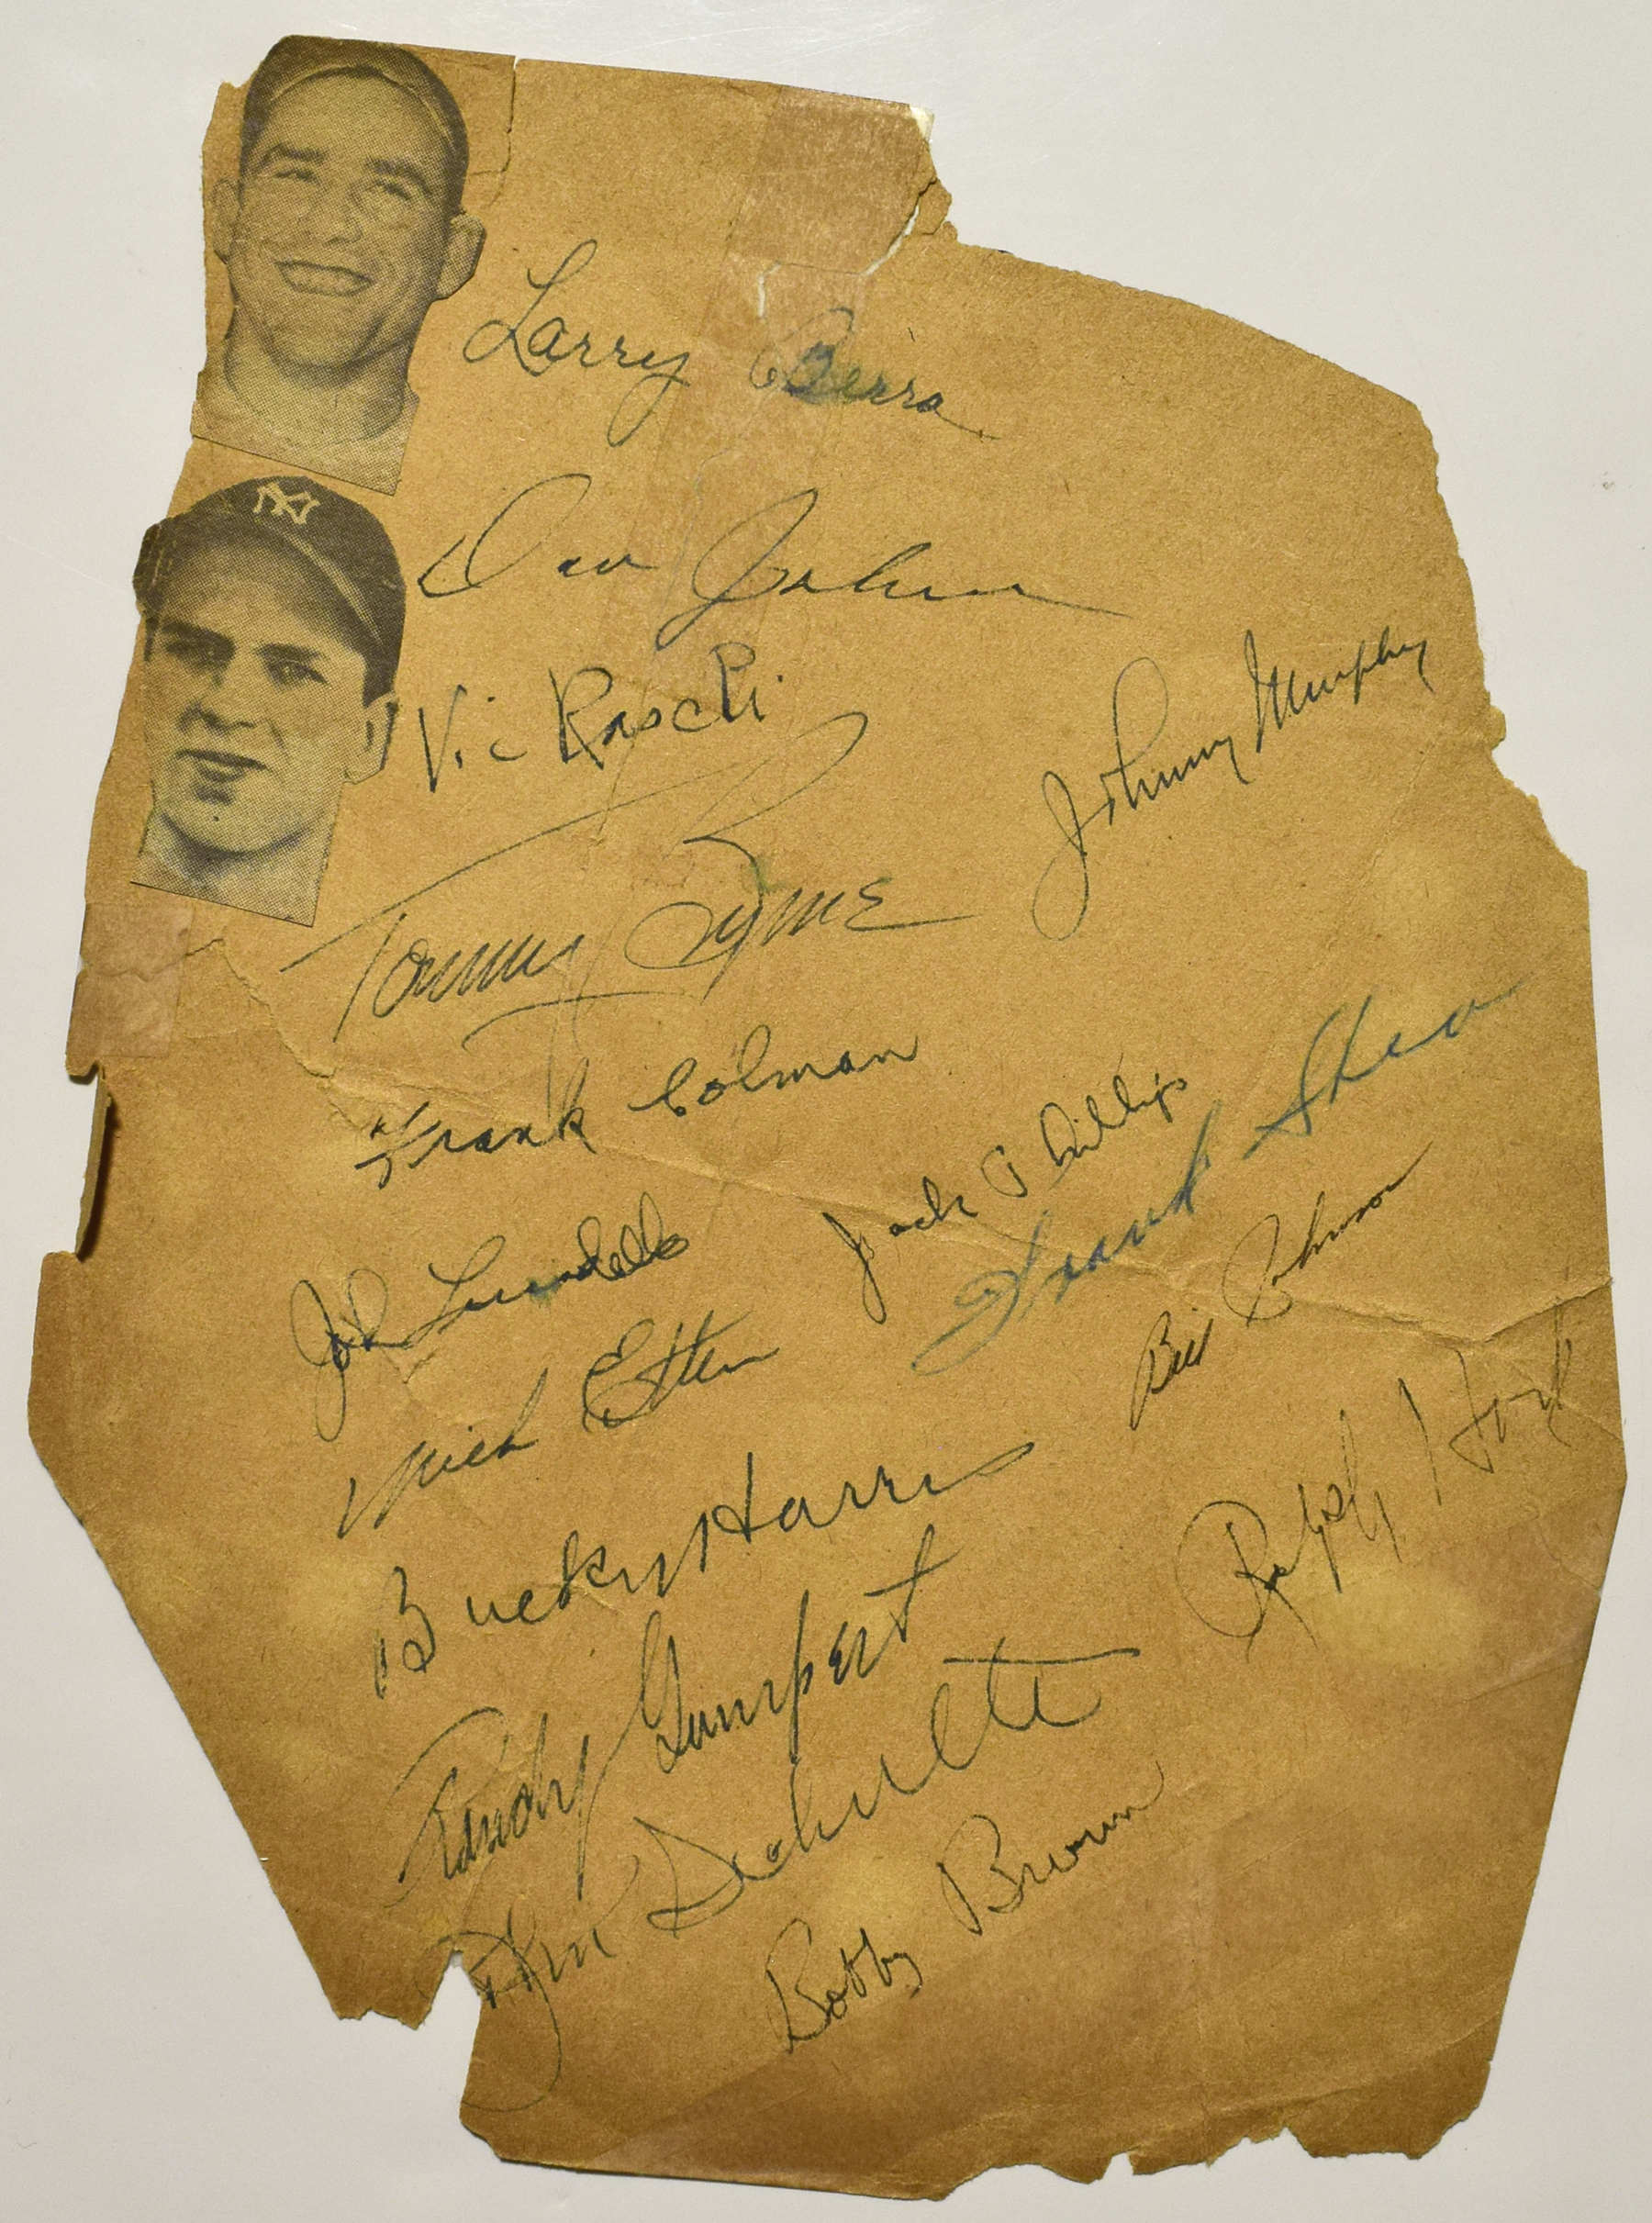 NY
Larry Berra
Don Johnson
Vic Raschi
Johnny Murphy
Tommy Byrne
Frank Colman
Frank Shea
Jack Phillips
Joh Lindell
Bill Johnson
Nick Etten
Ralph Houk
Bucky Harris
Randy Gumpert
Schulte
Bobby Brown